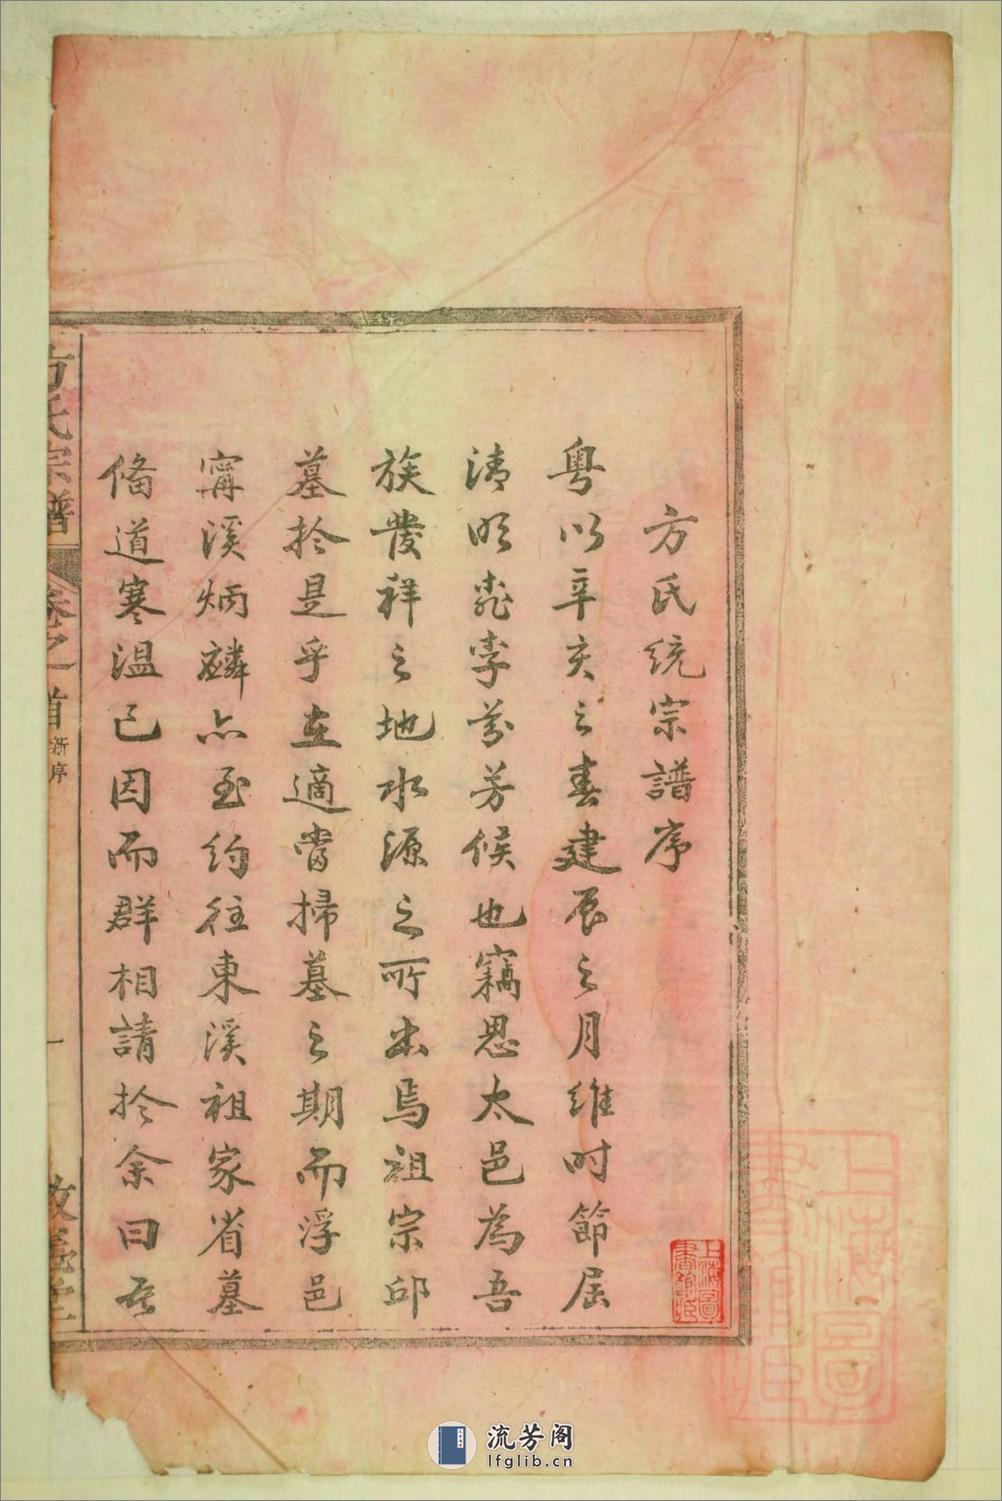 方氏統宗譜序
粵以辛亥之春建辰之月維时節屆
清明桃李芬芳候也竊思太邑為吾
族發祥之地水源之所出焉祖宗邱
墓扵是乎在適當掃墓之期而浮邑
寗溪炳麟亦至约往東溪祖家省墓
俻道寒溫已因而群相請扵余曰吾
方氏宗譜
卷之首
新序
一
敦彝堂
上海圖書館藏
流芳阁
lfglib.cn